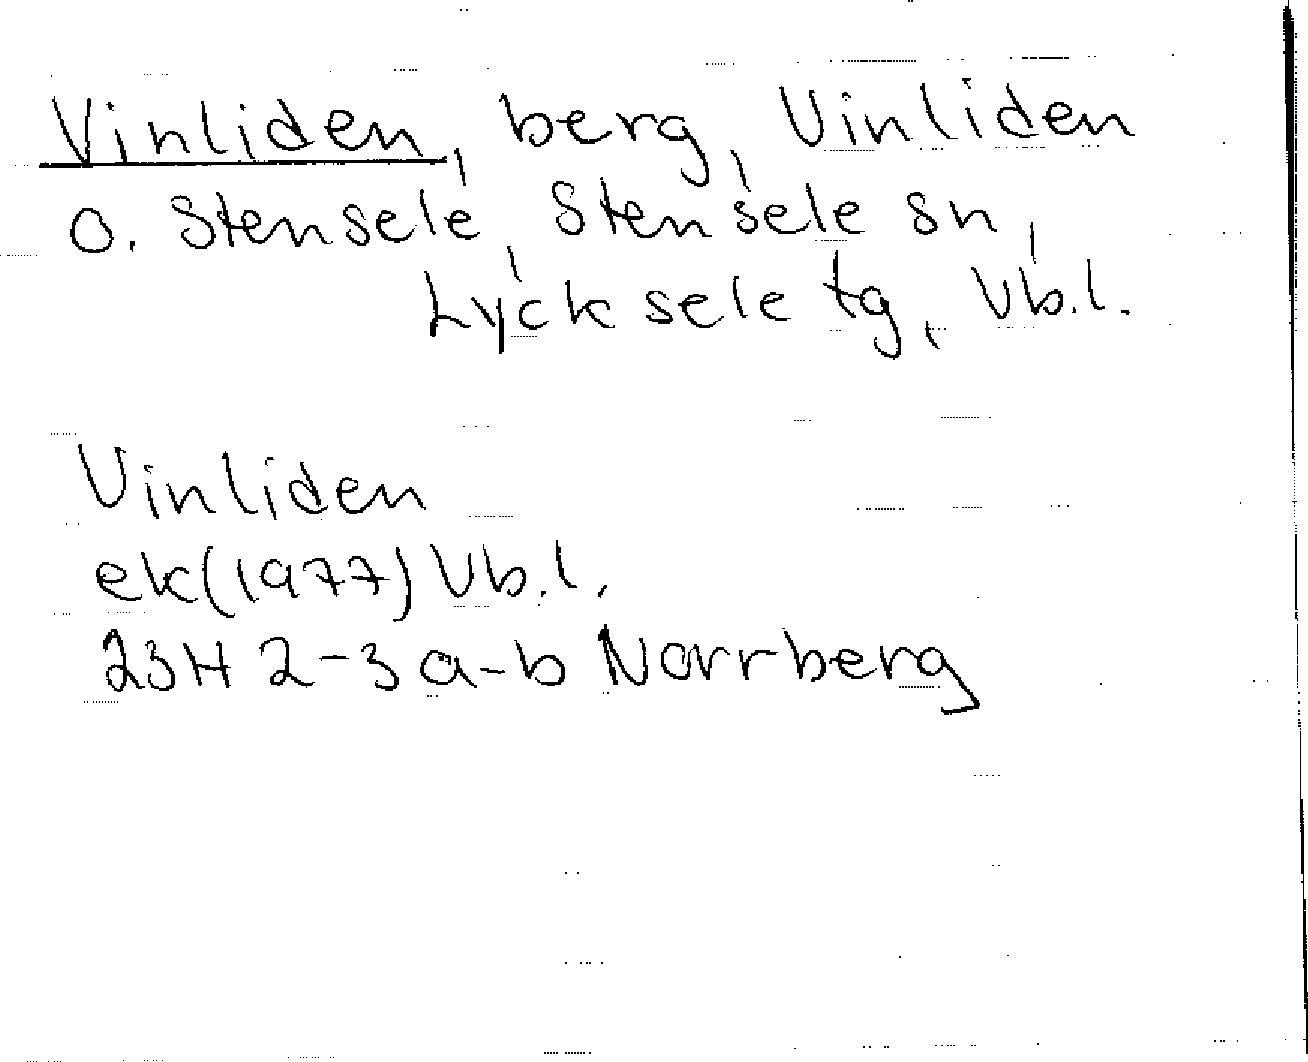 Vinliden, berg, Vinliden
o. Stensele, Stensele sn,
Lycksele tg, Vb.l.
Vinliden
ek(1977) Vb.l.
23H 2-3 a-b Norrberg